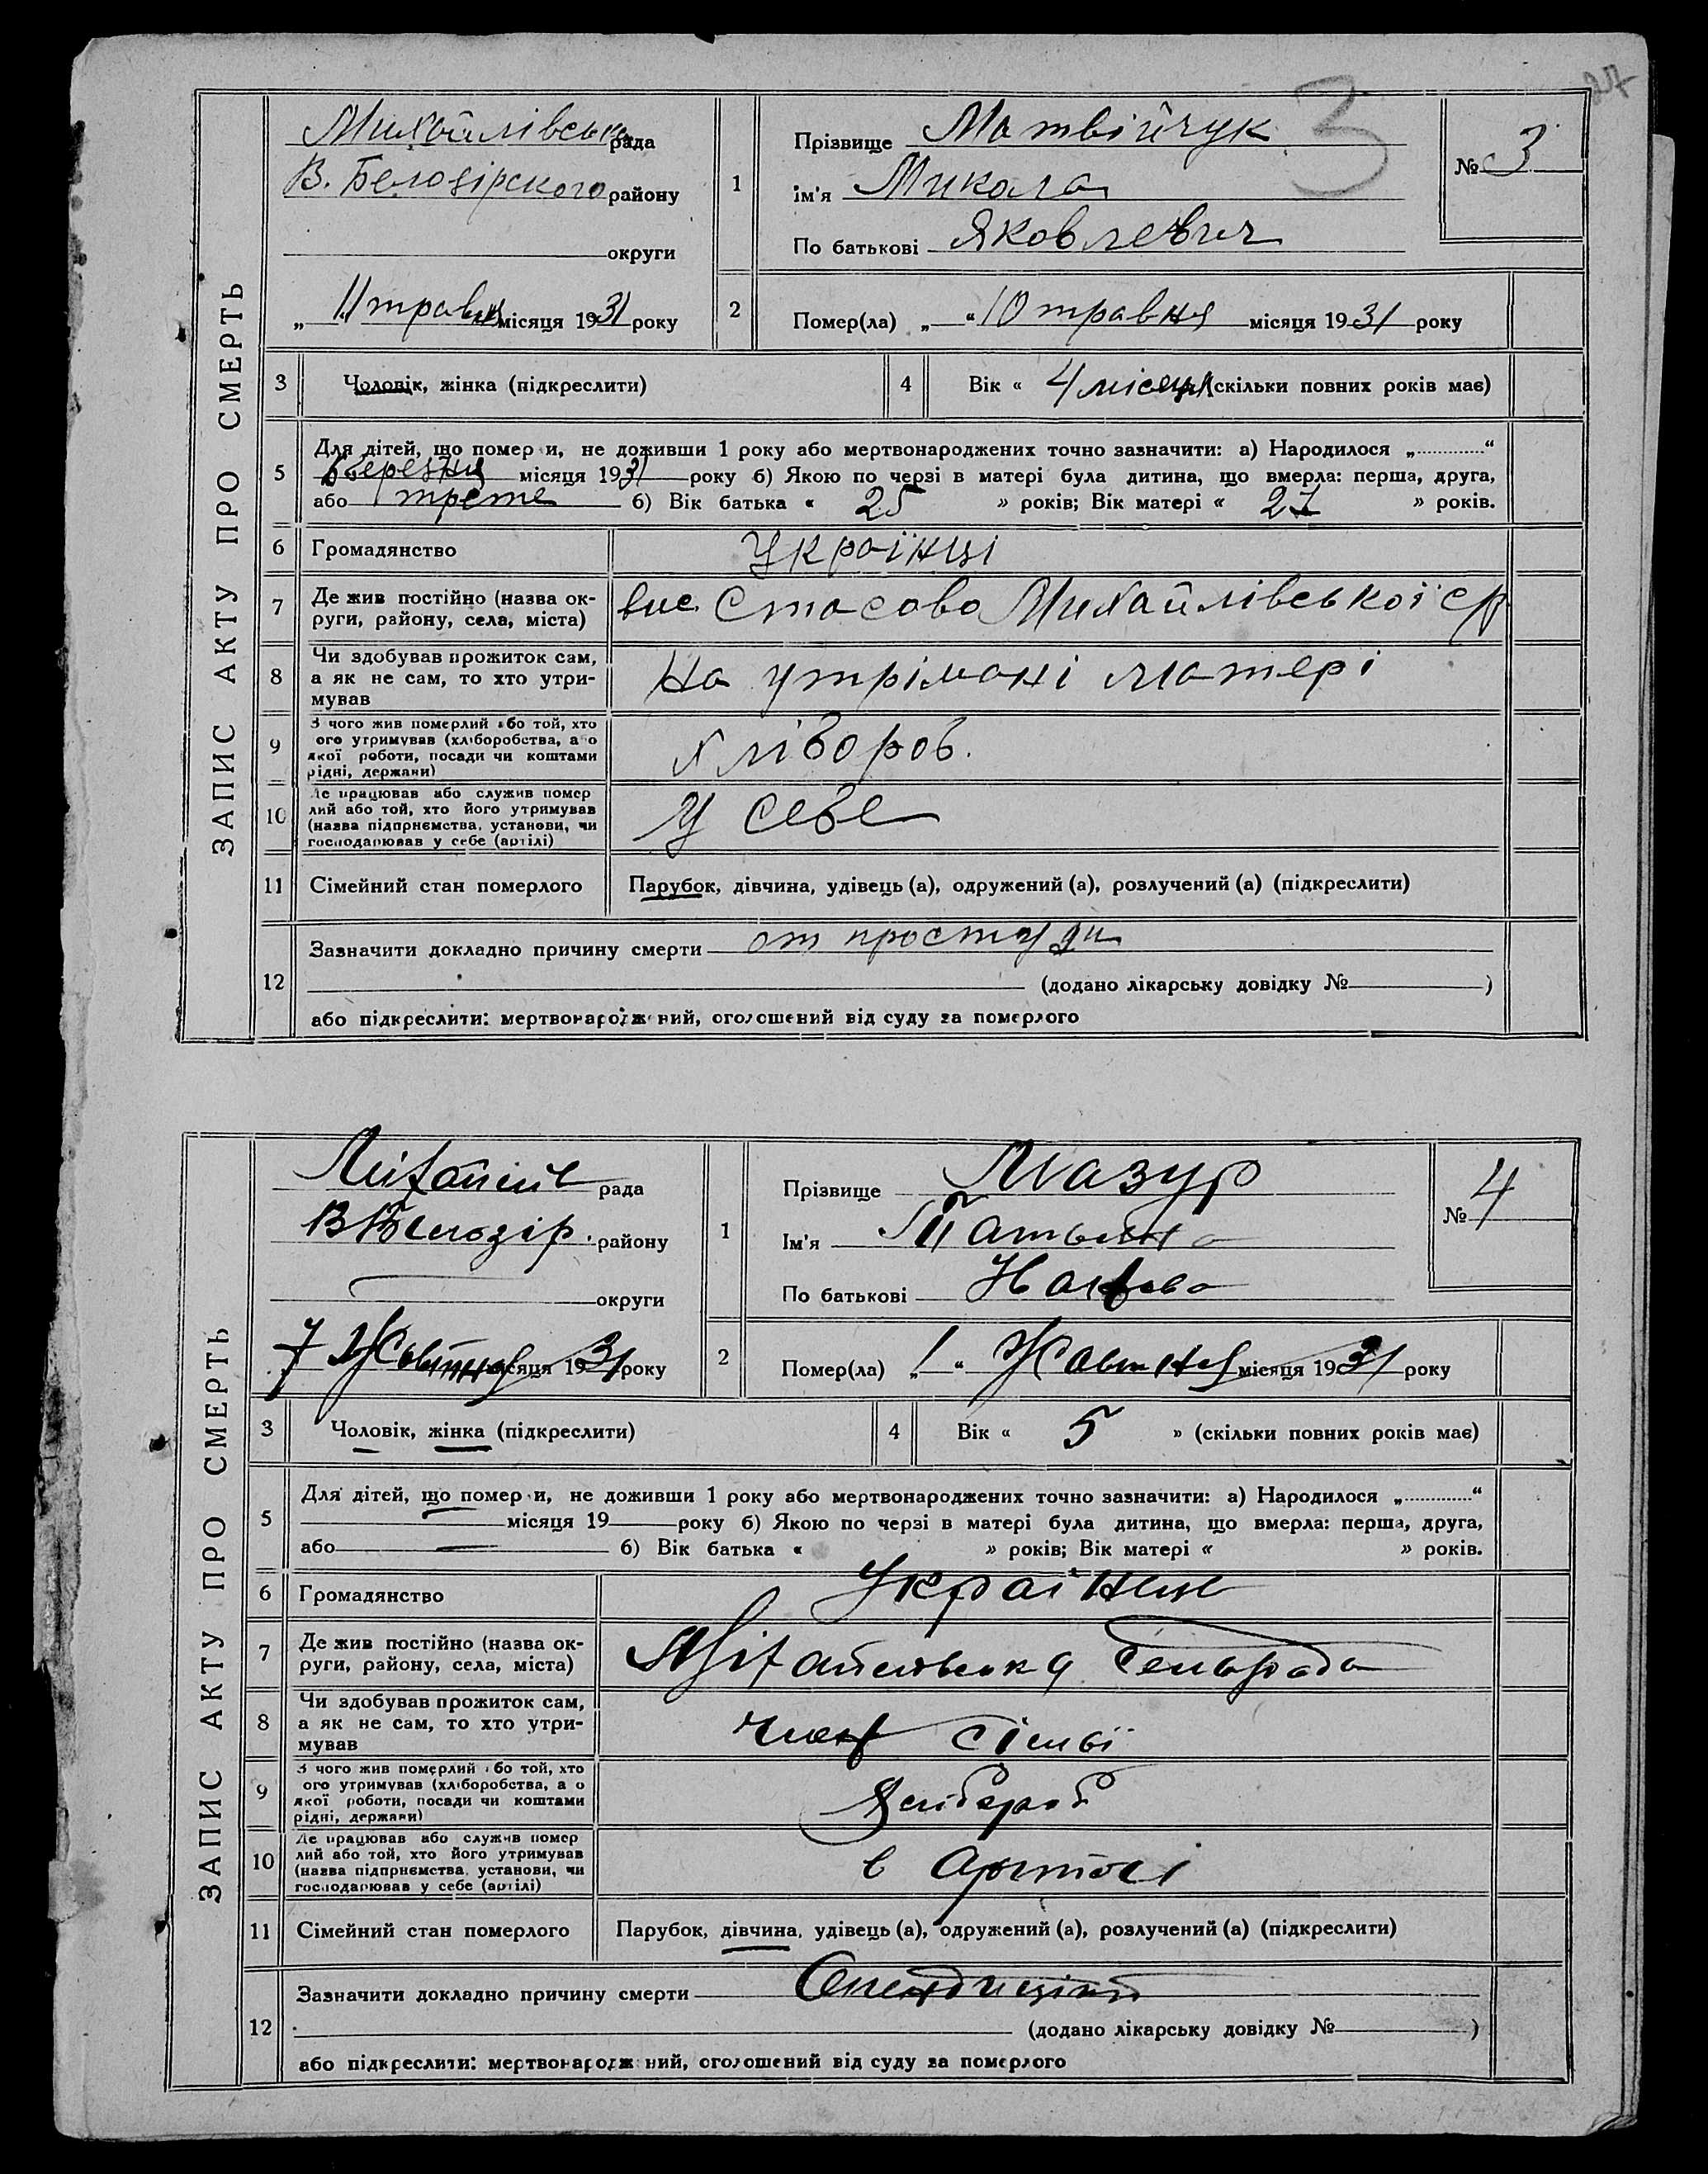 ЗАПИС АКТУ ПРО СМЕРТЬ
Михайлівська рада
В. Белозірского району
округи
„ 11 травня місяця 1931 року
1
Прізвище Матвійчук
ім'я Микола
По батькові Яковлевич
3
№ 3
2
Помер(ла) „ “ 10 травня місяця 1931 року
3
Чоловік, жінка (підкреслити)
4
Вік « 4 місяця (скільки повних років має)
5
Для дітей, що помер и, не доживши 1 року або мертвонароджених точно зазначити: а) Народилося „ “
Березня місяця 1931 року б) Якою по черзі в матері була дитина, що вмерла: перша, друга,
або трете б) Вік батька « 25 » років; Вік матері « 27 » років.
6
Громадянство
Українці
7
Де жив постійно (назва ок-
руги, району, села, міста)
вис. Стасово Михайлівської с/р
8
Чи здобував прожиток сам,
а як не сам, то хто утри-
мував
На утрімані матері
9
З чого жив померлий або той, хто
ого утримував (хліборобства, а о
якої роботи, посади чи коштами
рідні, держави)
хлібороб.
10
Де працював або служив помер
лий або той, хто його утримував
(назва підпрнємства, установи, чи
господарював у себе (артілі)
У себе
11
Сімейний стан померлого
Парубок, дівчина, удівець (а), одружений (а), розлучений (а) (підкреслити)
12
Зазначити докладно причину смерти от простуди
(додано лікарську довідку № )
або підкреслити: мертвонароджений, оголошений від суду за померлого
ЗАПИС АКТУ ПРО СМЕРТЬ
рада
В Белозір. району
округи
7 Жовтня місяця 1931 року
1
Прізвище Мазур
Ім'я Татьяна
По батькові
№ 4
2
Помер(ла) „ 1 “ Жовтня місяця 1931 року
3
Чоловік, жінка (підкреслити)
4
Вік « 5 » (скільки повних років має)
5
Для дітей, що помер и, не доживши 1 року або мертвонароджених точно зазначити: а) Народилося „ “
місяця 19 року б) Якою по черзі в матері була дитина, що вмерла: перша, друга,
або — б) Вік батька « » років; Вік матері « » років.
6
Громадянство
7
Де жив постійно (назва ок-
руги, району, села, міста)
Міхайловська Сельрада
8
Чи здобував прожиток сам,
а як не сам, то хто утри-
мував
член сімьї
9
З чого жив померлий або той, хто
ого утримував (хліборобства, а о
якої роботи, посади чи коштами
рідні, держави)
Хлібороб
10
Де працював або служив помер
лий або той, хто його утримував
(назва підпрнємства, установи, чи
господарював у себе (артілі)
в Артелі
11
Сімейний стан померлого
Парубок, дівчина, удівець (а), одружений (а), розлучений (а) (підкреслити)
12
Зазначити докладно причину смерти
(додано лікарську довідку № )
або підкреслити: мертвонароджений, оголошений від суду за померлого